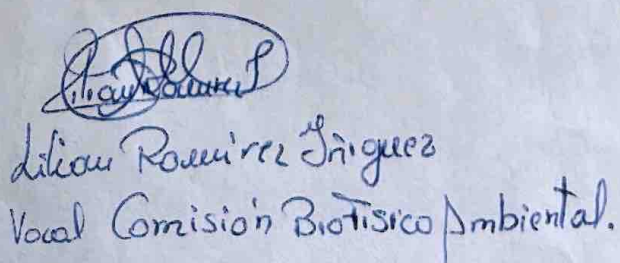 Lilian Ramirez Iñiguez
Vocal Comisión Biofísico Ambiental.